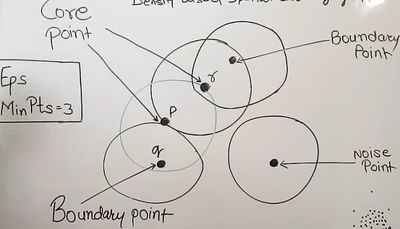 Density based Spatial
Core
Point
Boundary
Point
Eps
MinPts=3
r
P
q
Noise
Point
Boundary point